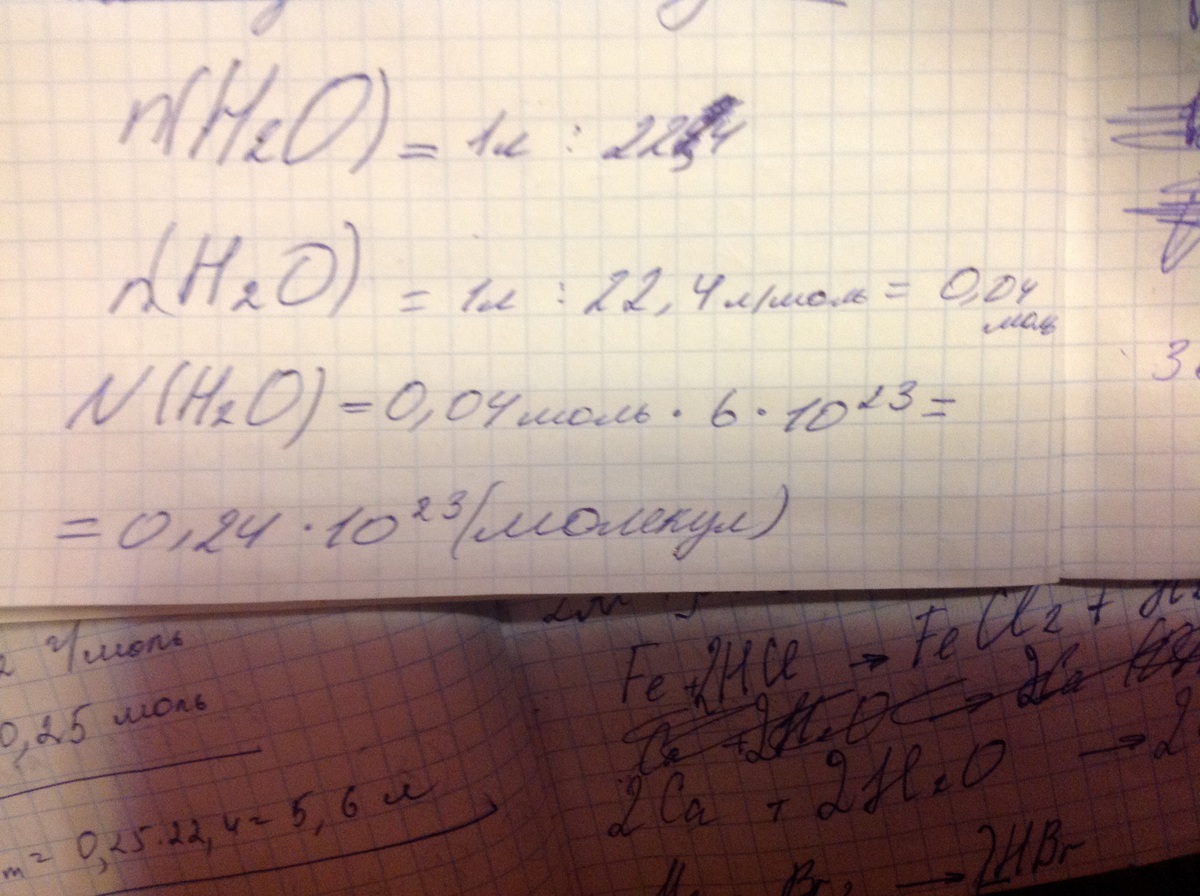 n(H₂O) = 1л : 22,4
n(H₂O) = 1л : 22,4 л/моль = 0,04 моль
N(H₂O) = 0,04 моль · 6 · 10²³ =
= 0,24 · 10²³ (молекул)
3
2 г/моль
0,25 моль
m = 0,25·22,4 = 5,6 л
Fe + 2HCl → FeCl₂ + H₂
2Ca + 2H₂O → 2
Br₂ → 2HBr